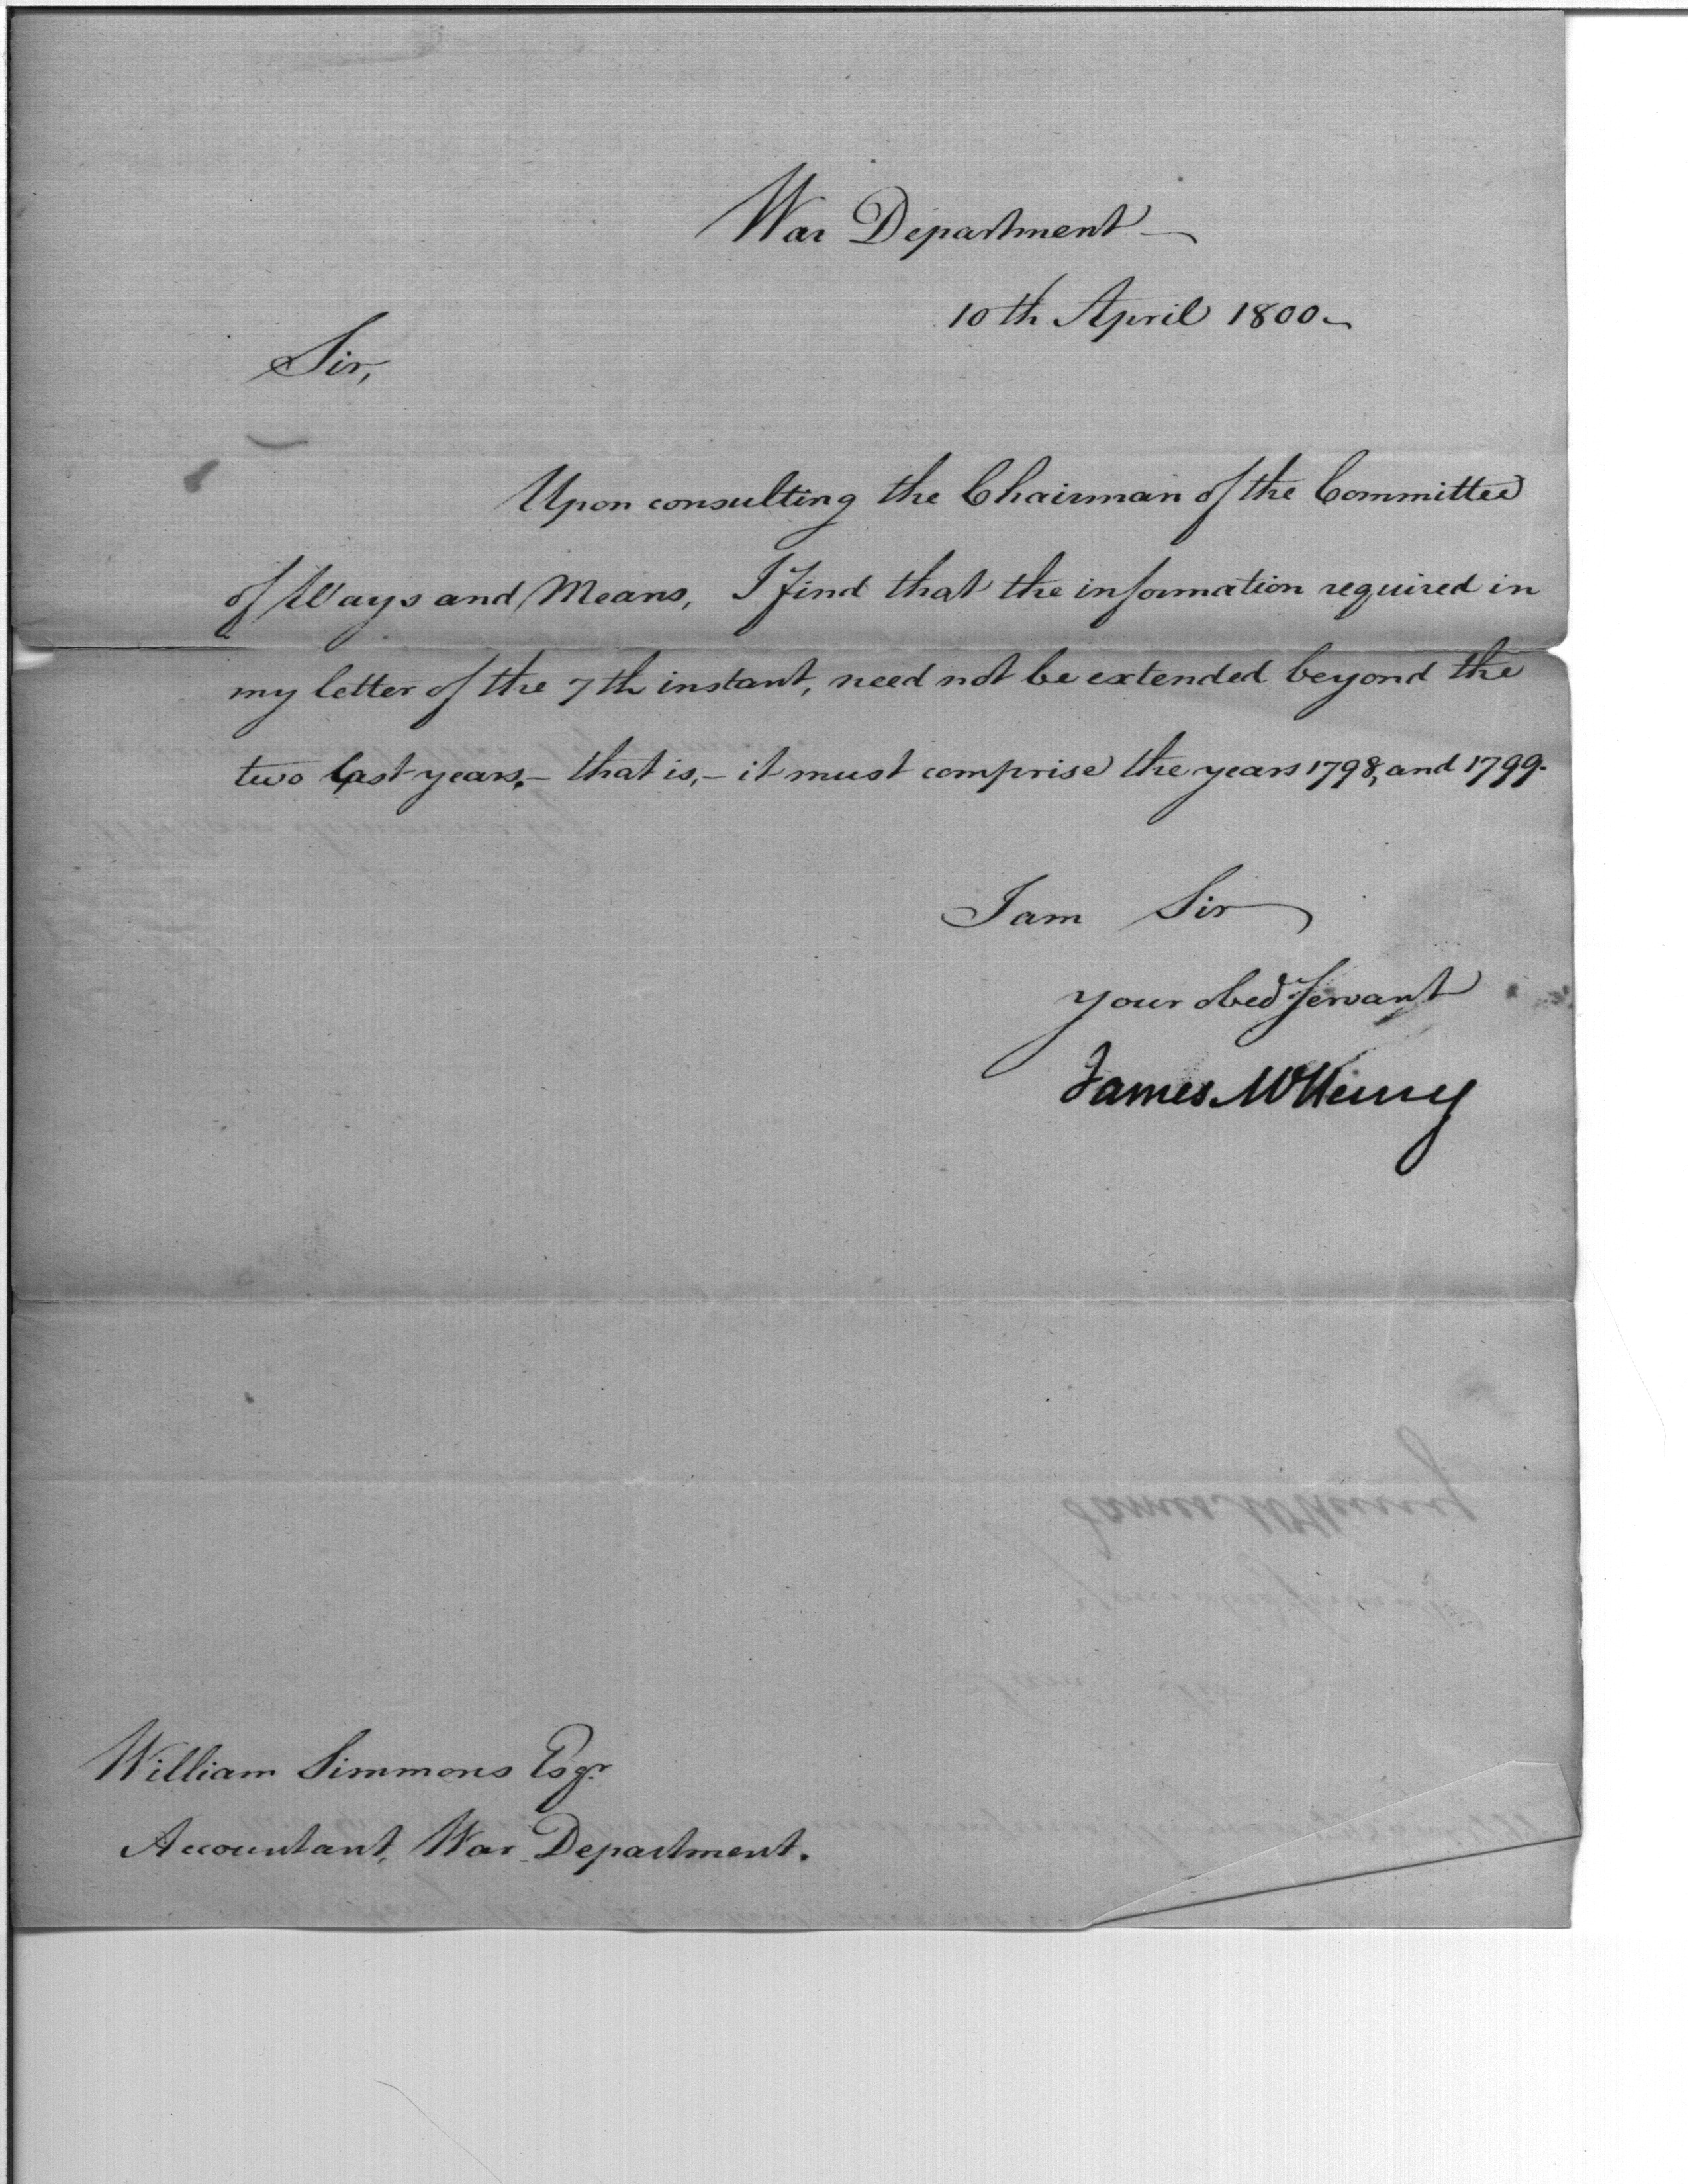 War Department
10th April 1800
Sir,
Upon consulting the Chairman of the Committee
of Ways and Means, I find that the information required in
my letter of the 7th instant, need not be extended beyond the
two last years. - that is, - it must comprise the years 1798, and 1799.
I am Sir
your obed Servant
James McHenry
William Simmons Esqr
Accountant, War Department.